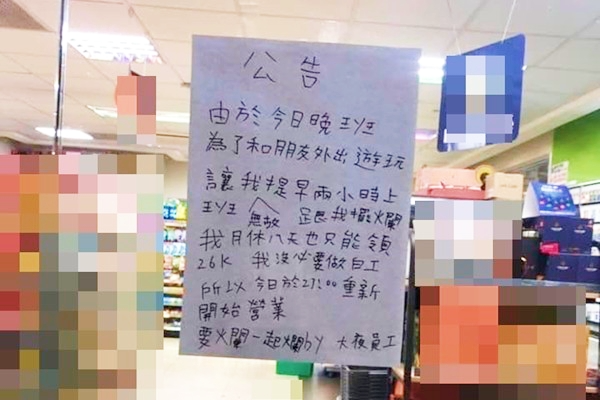 公告
由於今日晚班
為了和朋友外出遊玩
讓我提早兩小時上
班 無故 跟我擺爛
我月休八天也只能領
26K 我沒必要做白工
所以 今日於21:00重新
開始營業
要爛一起爛by 大夜員工